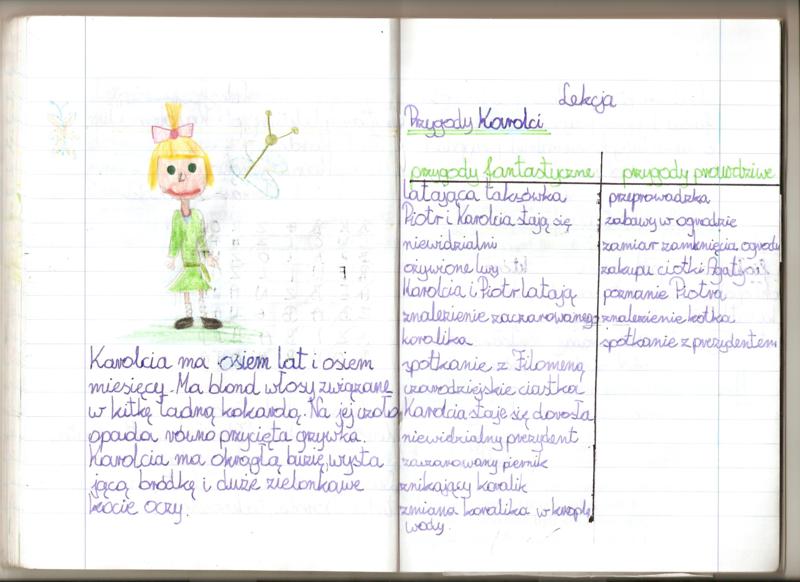 Karolcia ma osiem lat i osiem
miesięcy. Ma blond włosy związane
w kitkę ładną kokardą. Na jej czoło
opada równo przycięta grzywka.
Karolcia ma okrągłą buzię, wysta
jącą bródkę i duże zielonkawe
kocie oczy.
Lekcja
Przygody Karolci
przygody fantastyczne
latająca taksówka
Piotr i Karolcia stają się
niewidzialni
ożywione lwy
Karolcia i Piotr latają
znalezienie zaczarowanego
koralika
spotkanie z Filomeną
czarodziejskie ciastka
Karolcia staje się dorosła
niewidzialny prezydent
zaczarowany piernik
znikający koralik
zmiana koralika w kroplę
wody.
przygody prawdziwe
przeprowadzka
zabawy w ogrodzie
zamiar zamknięcia ogrodu
zakupu ciotki Agaty
poznanie Piotra
znalezienie kotka
spotkanie z prezydentem